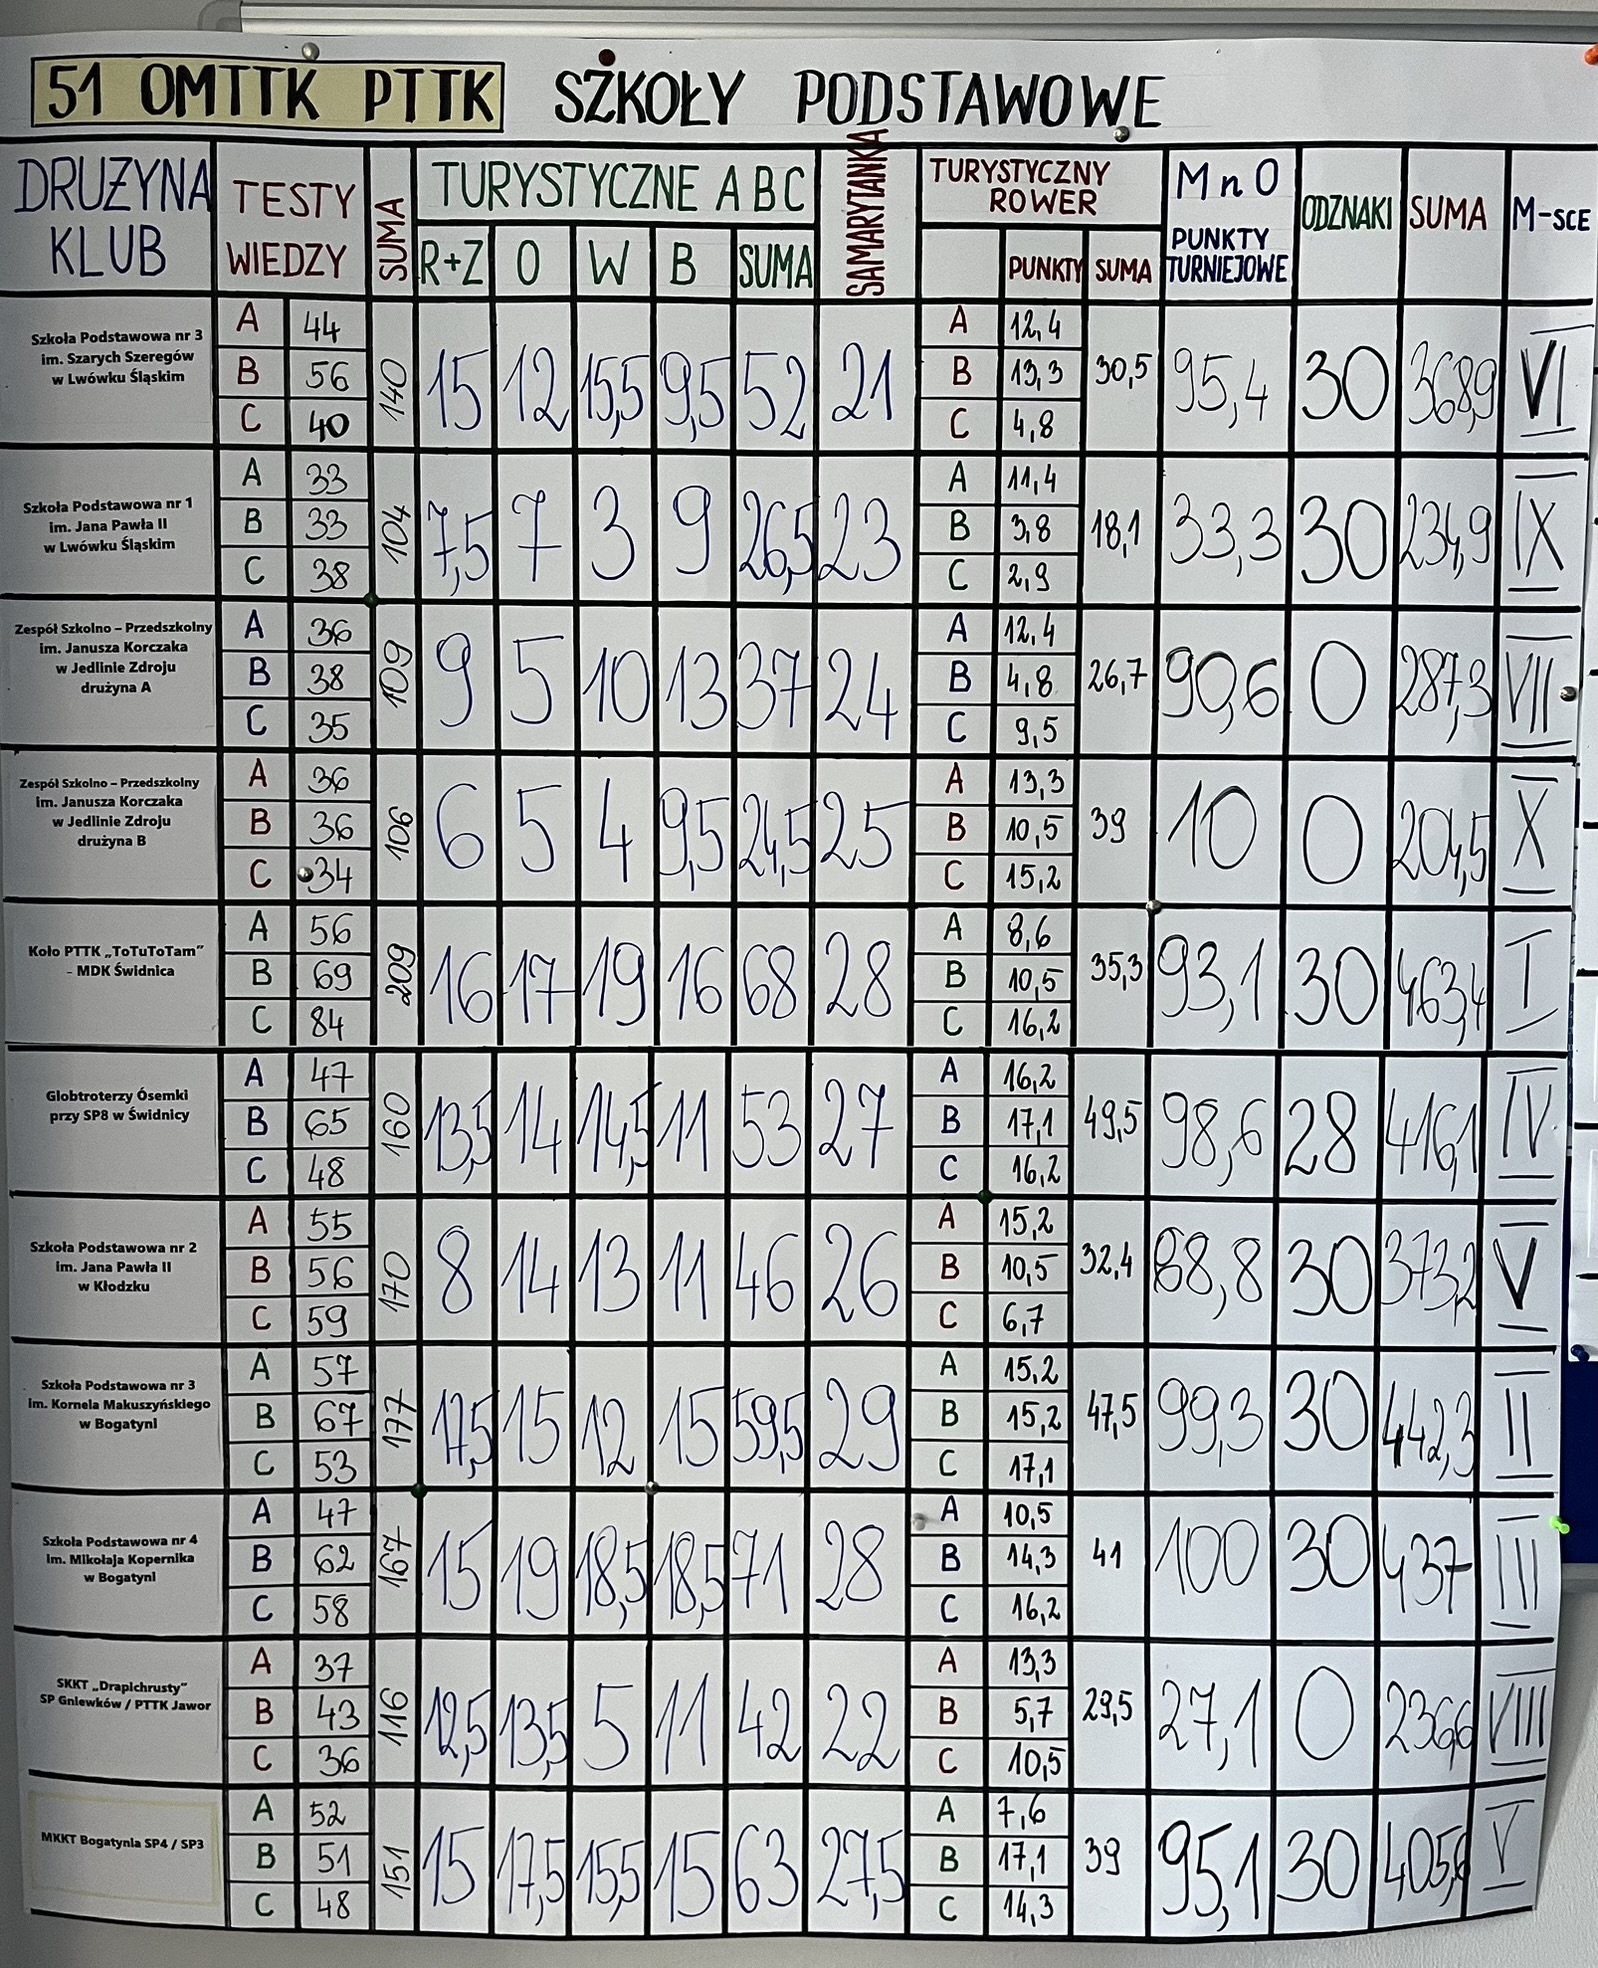 51 OMTTK PTTK SZKOŁY PODSTAWOWE
DRUŻYNA KLUB
TESTY WIEDZY
SUMA
TURYSTYCZNE ABC
R+Z O W B SUMA
SAMARYTANKA
TURYSTYCZNY ROWER
PUNKTY SUMA
MnO
PUNKTY TURNIEJOWE
ODZNAKI
SUMA
M-SCE
Szkoła Podstawowa nr 3
im. Szarych Szeregów
w Lwówku Śląskim
A 44
B 56
C 40
140
15 12 15,5 9,5 52 21
A 12,4
B 13,3
C 4,8
30,5 95,4 30 368,9 VI
Szkoła Podstawowa nr 1
im. Jana Pawła II
w Lwówku Śląskim
A 33
B 33
C 38
104
7,5 7 3 9 26,5 23
A 11,4
B 3,8
C 2,9
18,1 33,3 30 234,9 IX
Zespół Szkolno – Przedszkolny
im. Janusza Korczaka
w Jedlinie Zdroju
drużyna A
A 36
B 38
C 35
109
9 5 10 13 37 24
A 12,4
B 4,8
C 9,5
26,7 90,6 0 287,3 VII
Zespół Szkolno – Przedszkolny
im. Janusza Korczaka
w Jedlinie Zdroju
drużyna B
A 36
B 36
C 34
106
6 5 4 9,5 24,5 25
A 13,3
B 10,5
C 15,2
39 10 0 204,5 X
Koło PTTK „ToTuToTam”
- MDK Świdnica
A 56
B 69
C 84
209
16 17 19 16 68 28
A 8,6
B 10,5
C 16,2
35,3 93,1 30 463,4 I
Globtroterzy Ósemki
przy SP8 w Świdnicy
A 47
B 65
C 48
160
13,5 14 14,5 11 53 27
A 16,2
B 17,1
C 16,2
49,5 98,6 28 416,1 IV
Szkoła Podstawowa nr 2
im. Jana Pawła II
w Kłodzku
A 55
B 56
C 59
170
8 14 13 11 46 26
A 15,2
B 10,5
C 6,7
32,4 68,8 30 373,2 V
Szkoła Podstawowa nr 3
im. Kornela Makuszyńskiego
w Bogatyni
A 57
B 67
C 53
177
17,5 15 12 15 59,5 29
A 15,2
B 15,2
C 17,1
47,5 99,3 30 442,3 II
Szkoła Podstawowa nr 4
im. Mikołaja Kopernika
w Bogatyni
A 47
B 62
C 58
167
15 19 18,5 18,5 71 28
A 10,5
B 14,3
C 16,2
41 100 30 437 III
SKKT „Drapichrusty”
SP Gniewków / PTTK Jawor
A 37
B 43
C 36
116
12,5 13,5 5 11 42 22
A 13,3
B 5,7
C 10,5
29,5 27,1 0 236,6 VIII
MKKT Bogatynia SP4 / SP3
A 52
B 51
C 48
151
15 17,5 15,5 15 63 27,5
A 7,6
B 17,1
C 14,3
39 95,1 30 405,6 V